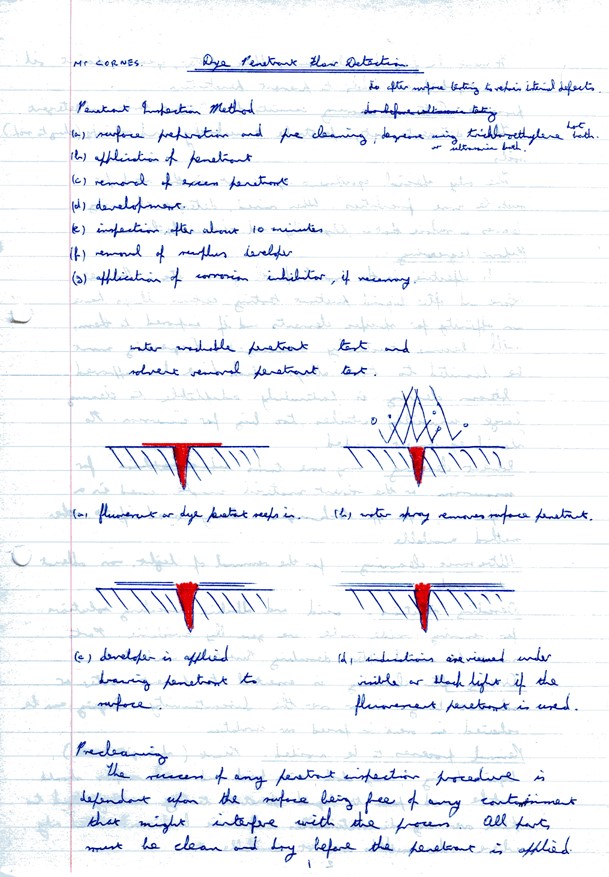 Mr CORNES.
Dye Penetrant Flaw Detection.
Do after surface testing to repair internal defects.
Penetrant Inspection Method
do before ultrasonic testing
(a) surface preparation and pre cleaning, degrease using trichloroethylene hot bath.
or ultrasonic bath.
(b) application of penetrant
(c) removal of excess penetrant
(d) development.
(e) inspection after about 10 minutes
(f) removal of surplus developer
(g) application of corrosion inhibitor, if necessary.
water washable penetrant test and
solvent removal penetrant test.
(a) fluorescent or dye penetrant seeps in.
(b) water spray removes surface penetrant.
(c) developer is applied
drawing penetrant to
surface.
(d) indications are viewed under
visible or black light if the
fluorescent penetrant is used.
Precleaning
The success of any penetrant inspection procedure is
dependant upon the surface being free of any containment
that might interfere with the process. All parts
must be clean and dry before the penetrant is applied
1